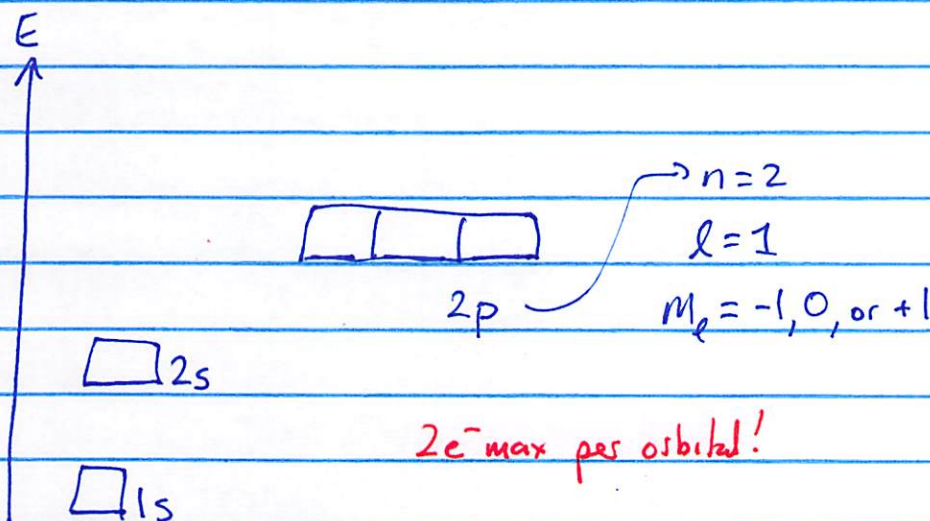 E
n = 2
l = 1
2p
mₗ = -1, 0, or +1
2s
2e⁻ max per orbital!
1s